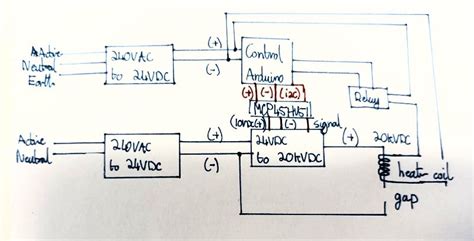 Active
Neutral
Earth
240VAC
to 24VDC
(+)
(-)
Control
Arduino
(+) (-) (i2c)
Relay
MCP45HV51
(10VDC+) (-) signal
Active
Neutral
240VAC
to 24VDC
(+)
(-)
24VDC
to 20kVDC
(+) 20kVDC
heater coil
gap